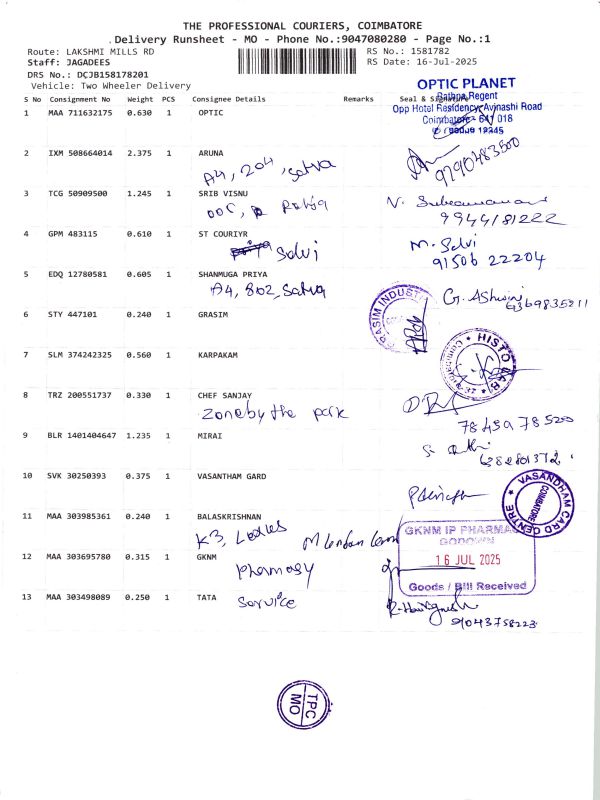 THE PROFESSIONAL COURIERS, COIMBATORE
Delivery Runsheet - MO - Phone No.:9047080280 - Page No.:1
Route: LAKSHMI MILLS RD RS No.: 1581782
Staff: JAGADEES RS Date: 16-Jul-2025
DRS No.: DCJB158178201
Vehicle: Two Wheeler Delivery
OPTIC PLANET
Rathna Regent
Opp Hotel Residency, Avinashi Road
Coimbatore - 641 018
S No Consignment No Weight PCS Consignee Details Remarks Seal & Signature
1 MAA 711632175 0.630 1 OPTIC
2 IXM 508664014 2.375 1 ARUNA
A4, 204, Satva
9790483500
3 TCG 50909500 1.245 1 SRIB VISNU
9944181222
4 GPM 483115 0.610 1 ST COURIYR
Selvi
M. Selvi
91506 22204
5 EDQ 12780581 0.605 1 SHANMUGA PRIYA
A4, 802, Satva
G. Ashwini
6369835211
6 STY 447101 0.240 1 GRASIM
GRASIM INDUST
7 SLM 374242325 0.560 1 KARPAKAM
HISTO
8 TRZ 200551737 0.330 1 CHEF SANJAY
Zone by the park
9 BLR 1401404647 1.235 1 MIRAI
10 SVK 30250393 0.375 1 VASANTHAM GARD
VASANDHAM CARD CENTRE
COIMBATORE
11 MAA 303985361 0.240 1 BALASKRISHNAN
K3,
GKNM IP PHARMA
GODOWN
16 JUL 2025
Goods / Bill Received
12 MAA 303695780 0.315 1 GKNM
Pharmasy
13 MAA 303498089 0.250 1 TATA
Service
9043758223
TPC
MO